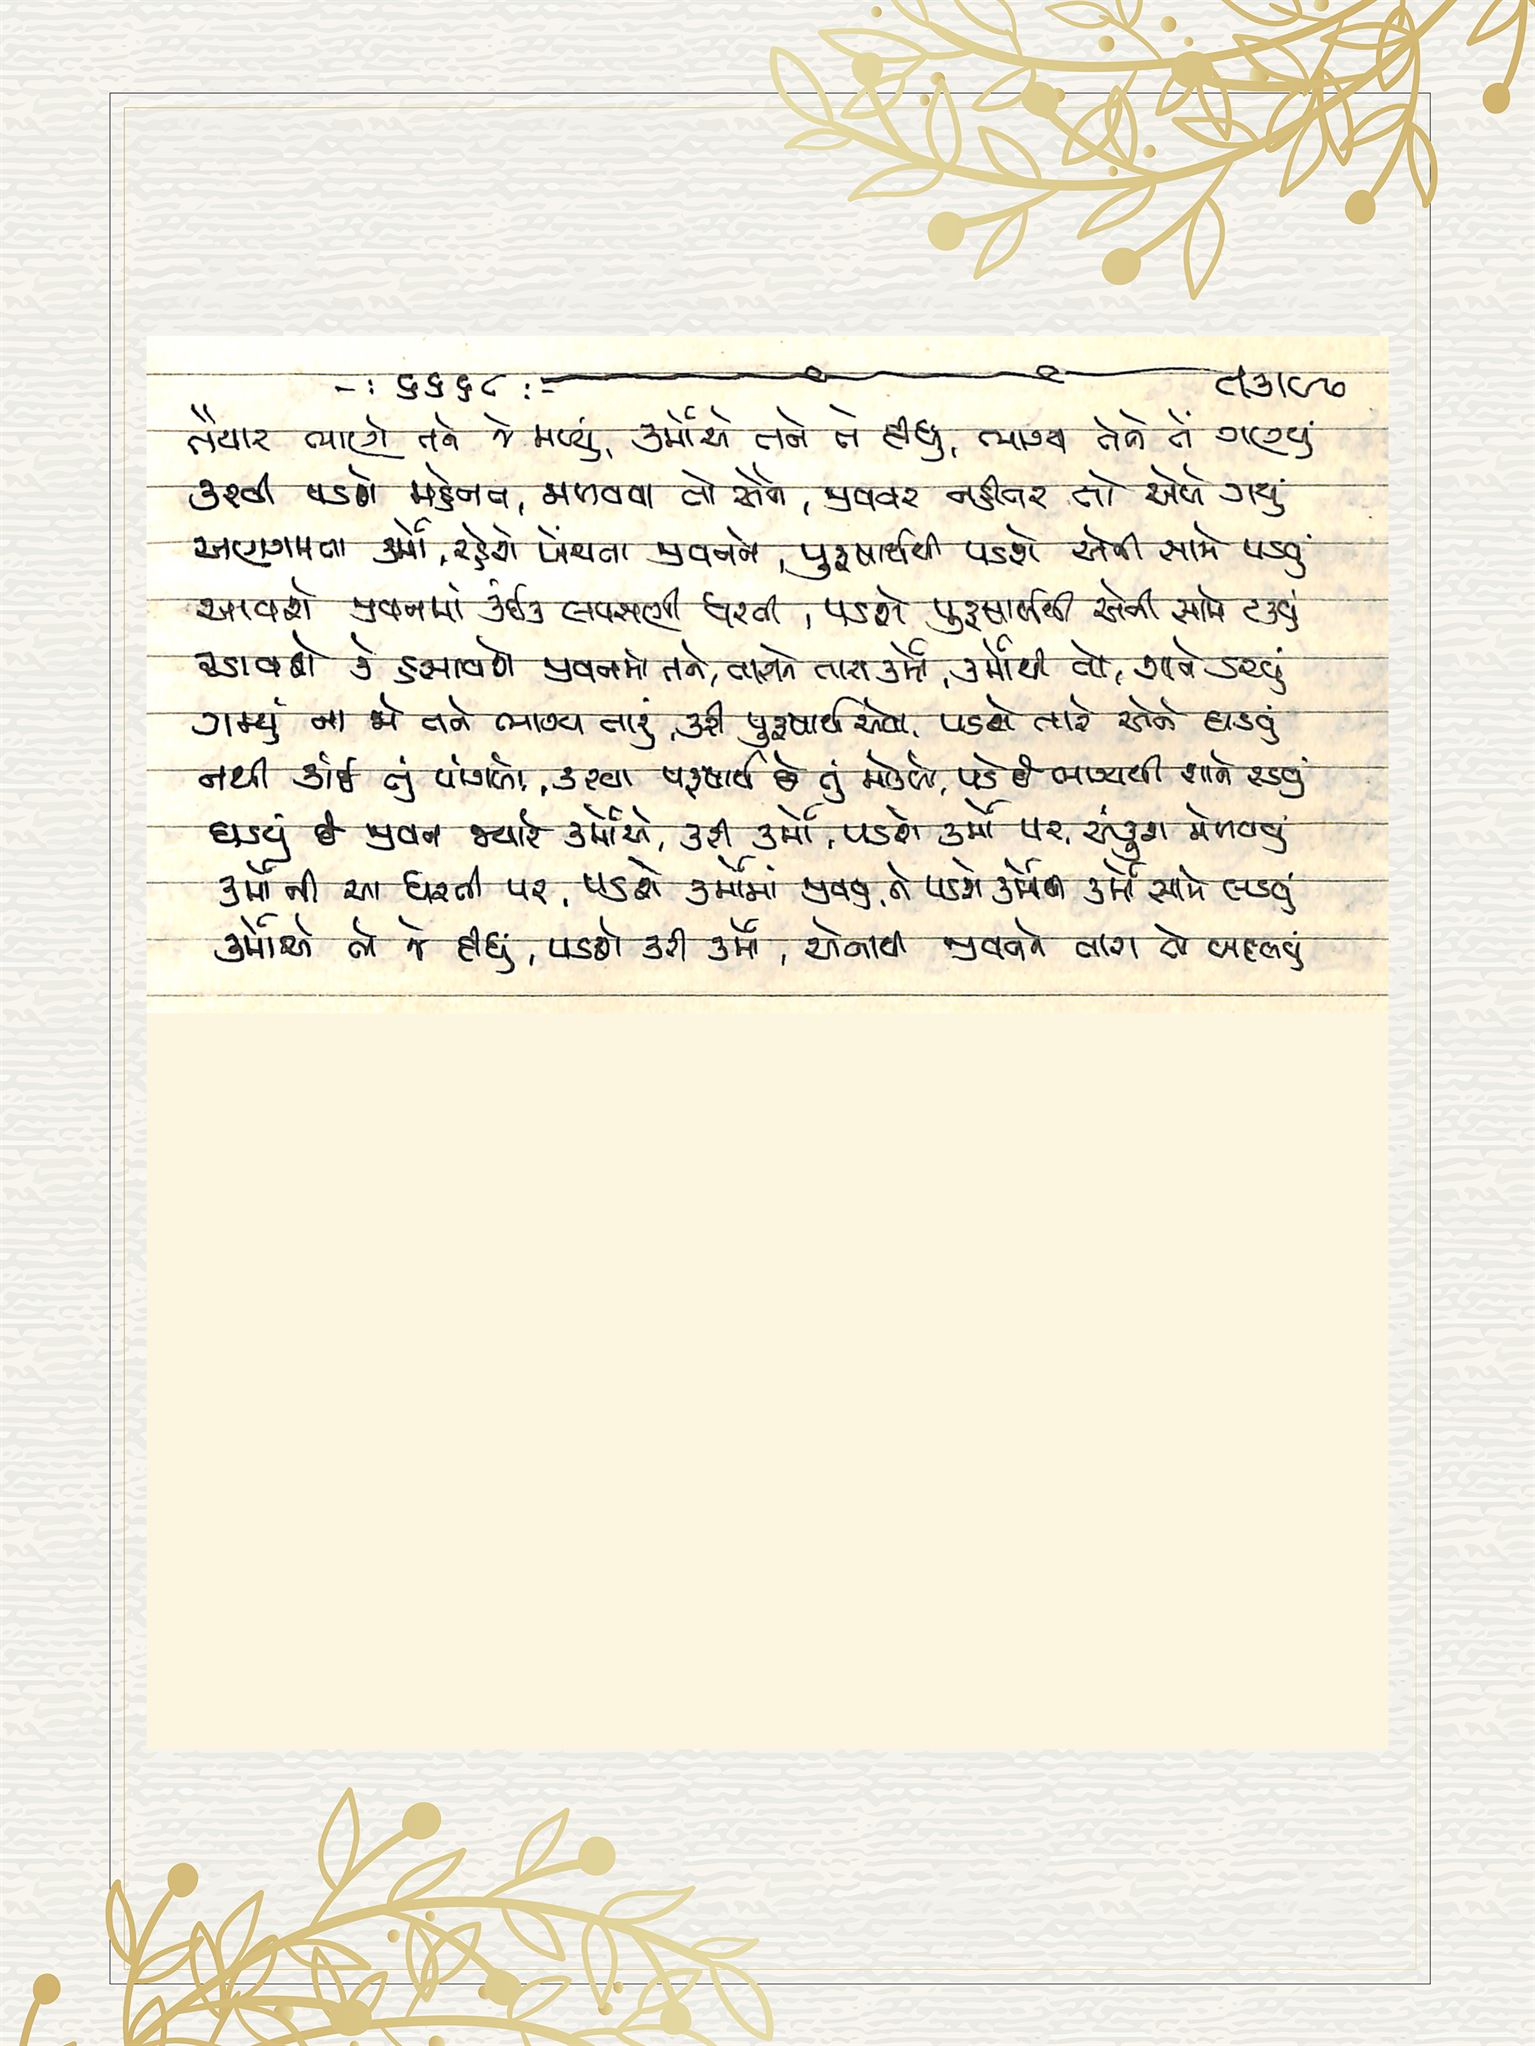 -: ૬૬૬૮ :-
તૈયાર ભાણે તને જે મળ્યું, કર્મોએ તને તે દીધું, ભાગ્ય તેને તેં ગણ્યું
કરવી પડશે મહેનત, મળવવા તો એને, જીવનર નહીંતર તો એળે ગયું
અણગમતા કર્મો, રહેશે ખેંચતા જીવનને, પુરૂષાર્થથી પડશે એની સામે પડવું
આવશે જીવનમાં કંઈક લપસણી ધરતી, પડશે પુરૂષાર્થથી એની સામે ટકવું
રડાવશે કે હસાવશે જીવનમાં તને, તારાને તારા કર્મો, કર્મોથી તો, શાને ડરવું
ગમ્યું ના જો તને ભાગ્ય તારું, કરી પુરૂષાર્થ એવો, પડશે તારે એને ઘડવું
નથી કાંઈ તું પાંગળો, કરવા પુરૂષાર્થ છે તું મોકળો, પડે છે ભાગ્યથી શાને રડવું
ઘડયું છે જીવન જ્યારે કર્મોએ, કરી કર્મો, પડશે કર્મો પર, અંકુશ મેળવવું
કર્મોની આ ધરતી પર, પડશે કર્મોમાં જીવવું, ને પડશે કર્મોથી કર્મો સામે લડવું
કર્મોએ તો જે દીધું, પડશે કરી કર્મો, એનાથી જીવનને તારા તો બદલવું